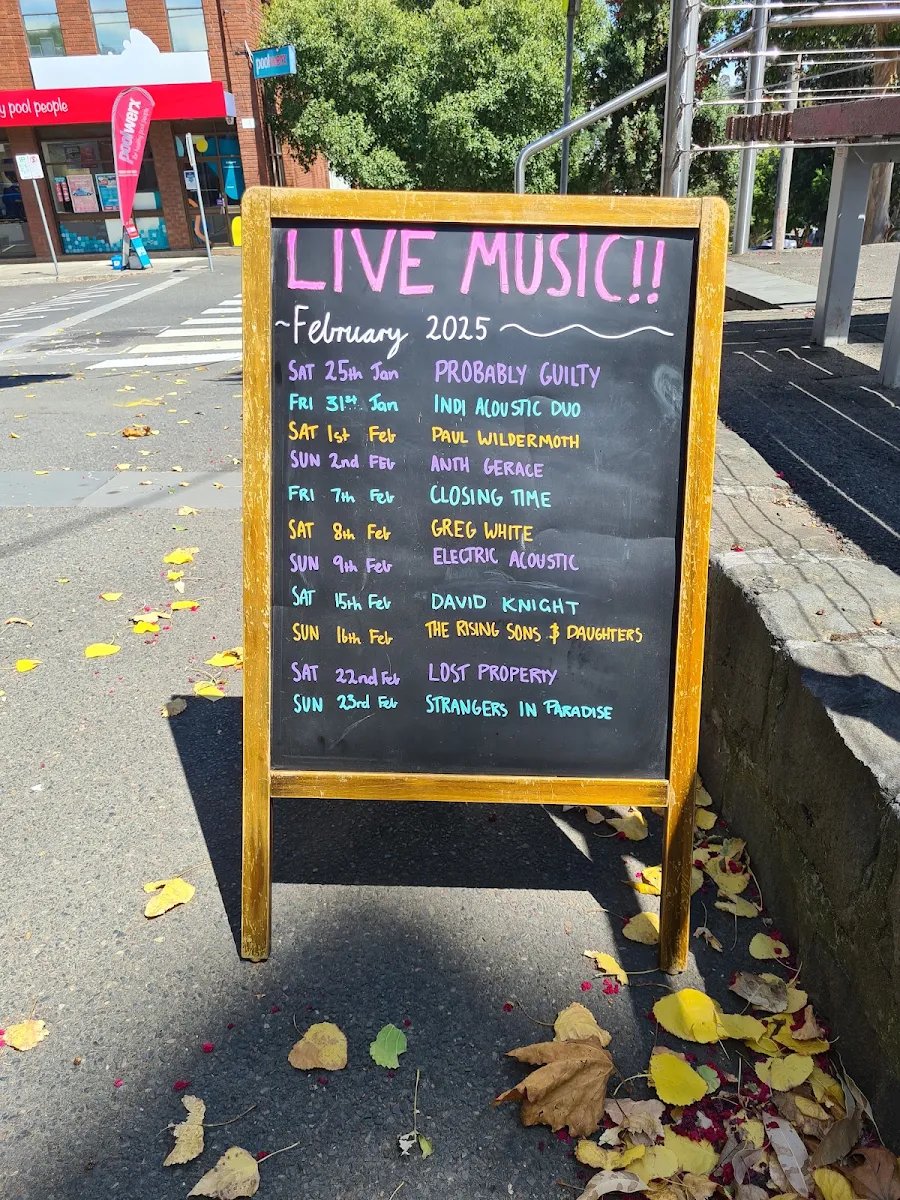 y pool people
poolwerx
poolwerx
LIVE MUSIC!!
~February 2025
SAT 25th Jan PROBABLY GUILTY
FRI 31st Jan INDI ACOUSTIC DUO
SAT 1st Feb PAUL WILDERMOTH
SUN 2nd FEb ANTH GERACE
FRI 7th Feb CLOSING TIME
SAT 8th Feb GREG WHITE
SUN 9th Feb ELECTRIC ACOUSTIC
SAT 15th Feb DAVID KNIGHT
SUN 16th Feb THE RISING SONS & DAUGHTERS
SAT 22nd Feb LOST PROPERTY
SUN 23rd Feb STRANGERS IN PARADISE